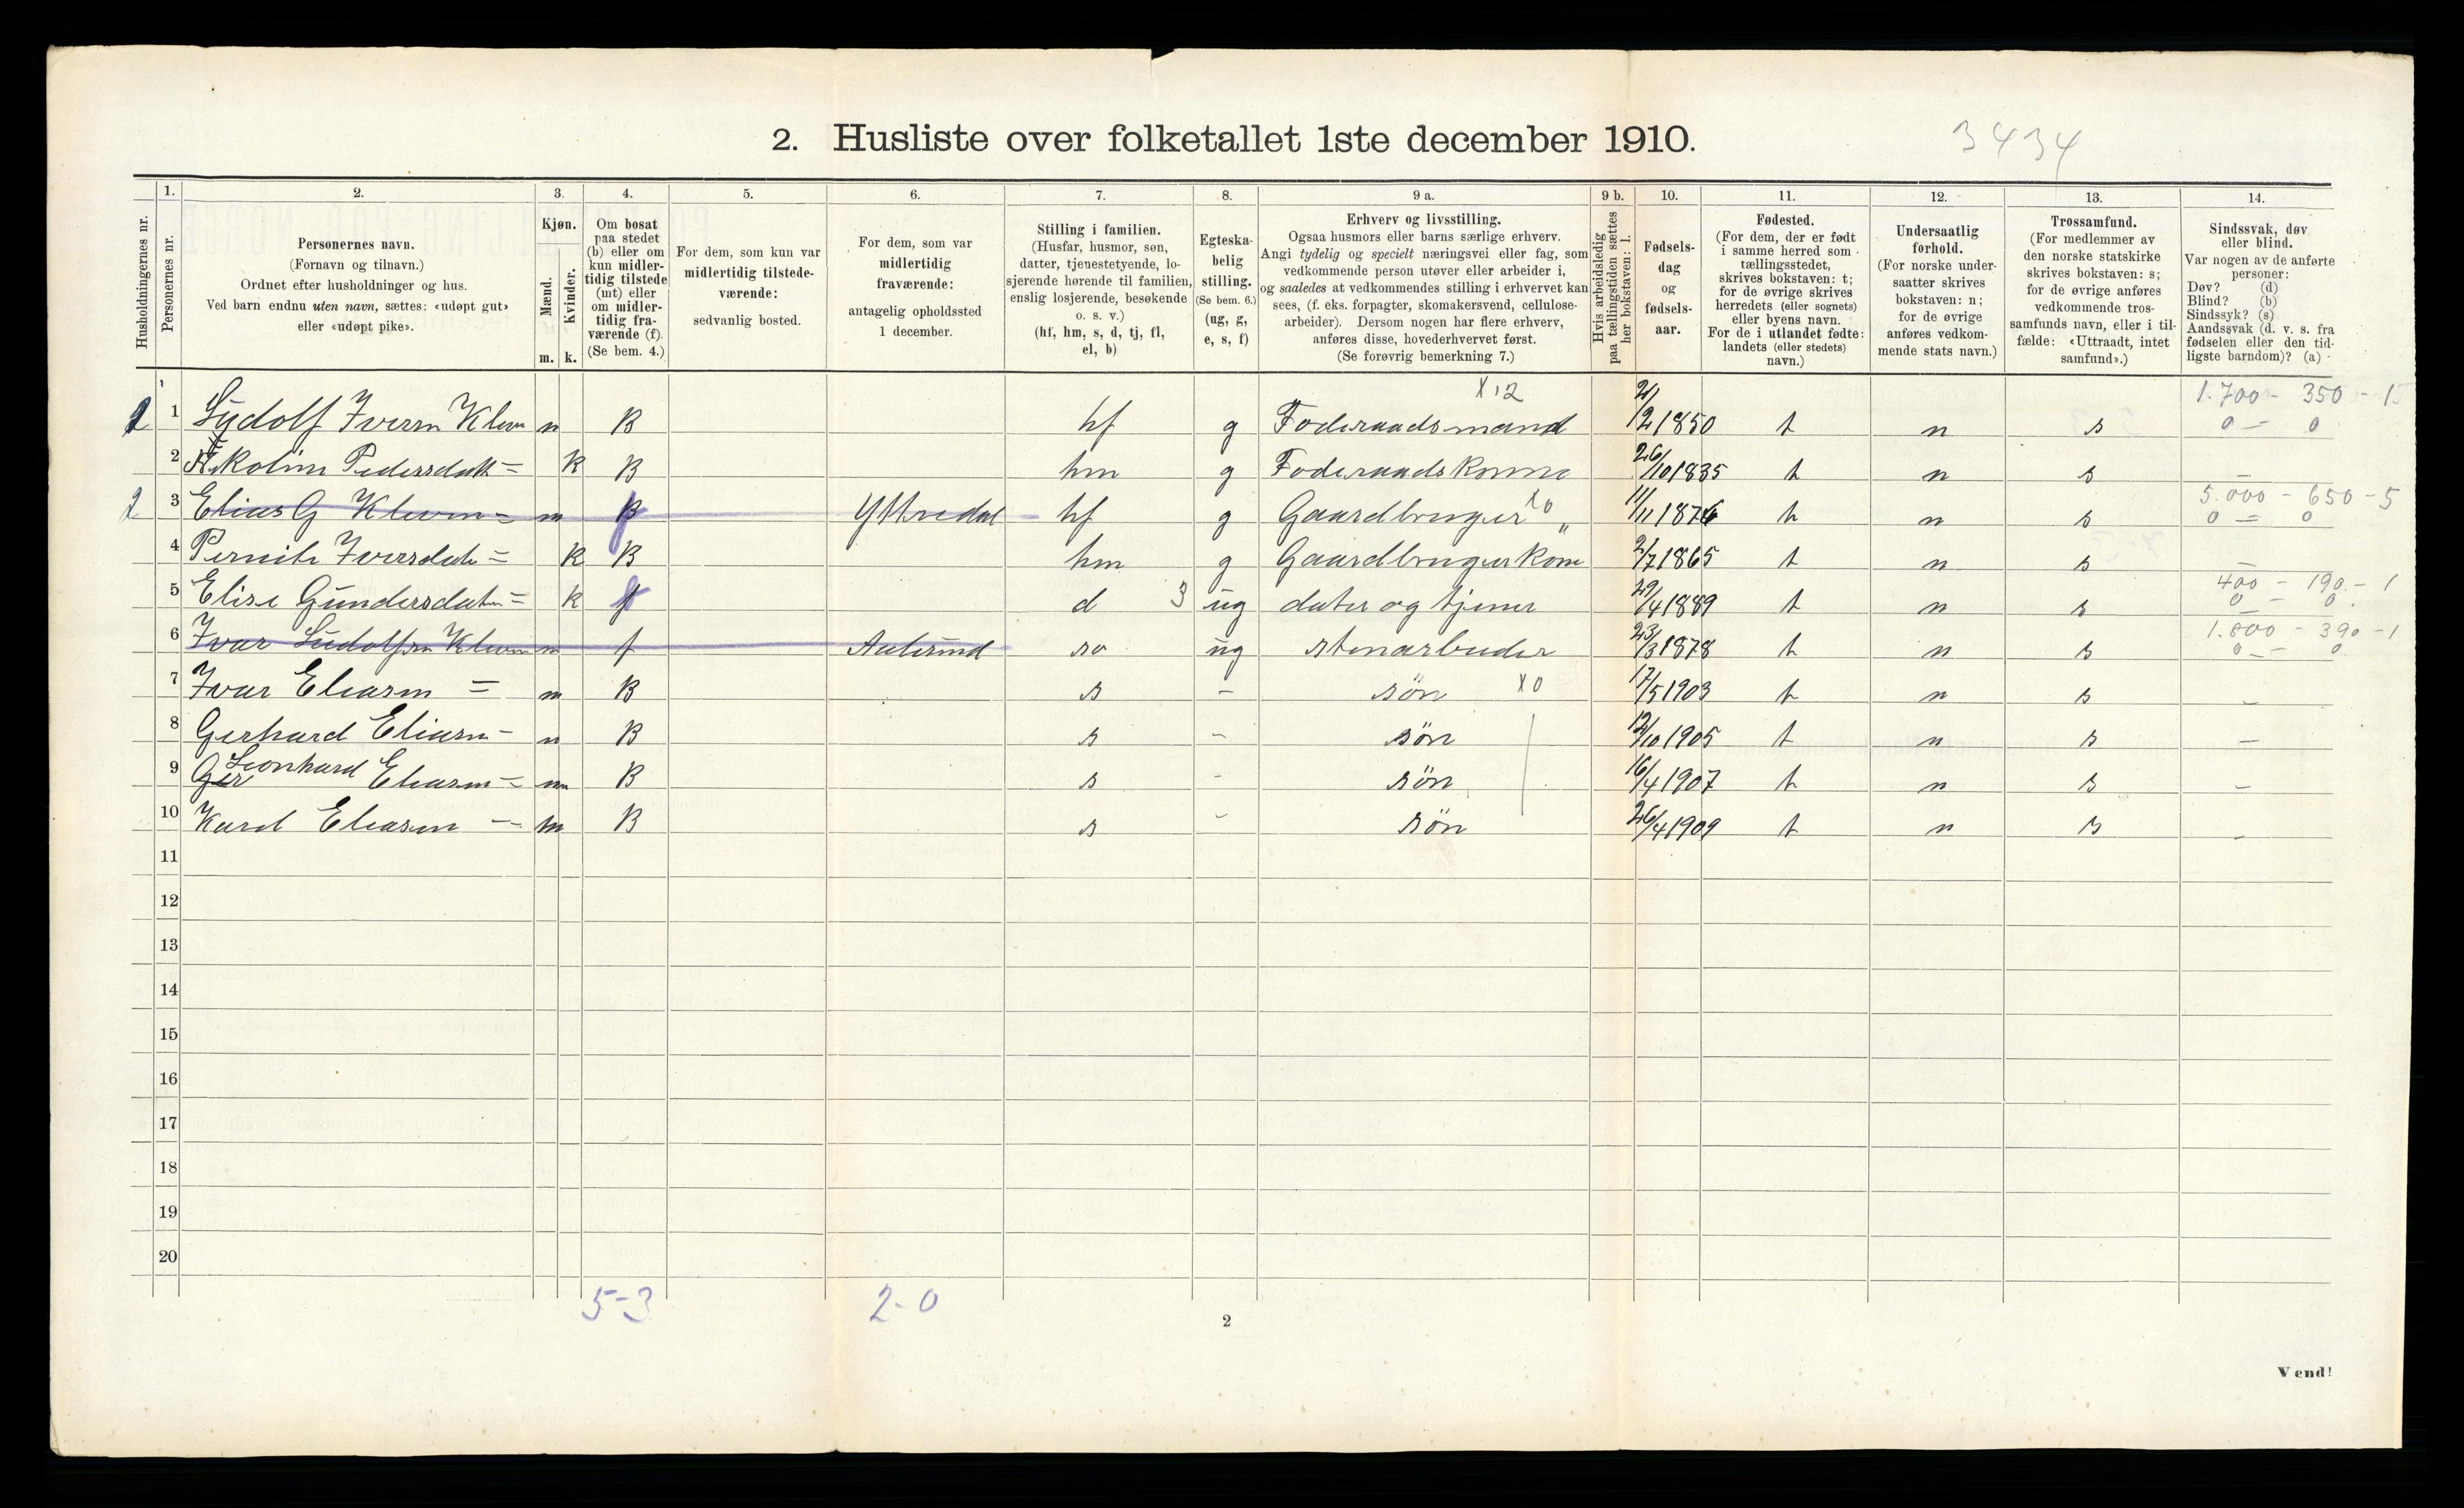 2. Husliste over folketallet 1ste december 1910.
3434
1. 2. 3. 4. 5. 6. 7. 8. 9 a. 9 b. 10. 11. 12. 13. 14.
Husholdningernes nr.
Personernes nr.
Personernes navn.
(Fornavn og tilnavn.)
Ordnet efter husholdninger og hus.
Ved barn endnu uten navn, sættes: «udøpt gut»
eller «udøpt pike».
Kjøn.
Mænd.
Kvinder.
m. k.
Om bosat
paa stedet
(b) eller om
kun midler-
tidig tilstede
(mt) eller
om midler-
tidig fra-
værende (f).
(Se bem. 4.)
For dem, som kun var
midlertidig tilstede-
værende:
sedvanlig bosted.
For dem, som var
midlertidig
fraværende:
antagelig opholdssted
1 december.
Stilling i familien.
(Husfar, husmor, søn,
datter, tjenestetyende, lo-
sjerende hørende til familien,
enslig losjerende, besøkende
o. s. v.)
(hf, hm, s, d, tj, fl,
el, b)
Egteska-
belig
stilling.
(Se bem. 6.)
(ug, g,
e, s, f)
Erhverv og livsstilling.
Ogsaa husmors eller barns særlige erhverv.
Angi tydelig og specielt næringsvei eller fag, som
vedkommende person utøver eller arbeider i,
og saaledes at vedkommendes stilling i erhvervet kan
sees, (f. eks. forpagter, skomakersvend, cellulose-
arbeider). Dersom nogen har flere erhverv,
anføres disse, hovederhvervet først.
(Se forøvrig bemerkning 7.)
Hvis arbeidsledig
paa tællingstiden sættes
her bokstaven: l.
Fødsels-
dag
og
fødsels-
aar.
Fødested.
(For dem, der er født
i samme herred som
tællingsstedet,
skrives bokstaven: t;
for de øvrige skrives
herredets (eller sognets)
eller byens navn.
For de i utlandet fødte:
landets (eller stedets)
navn.)
Undersaatlig
forhold.
(For norske under-
saatter skrives
bokstaven: n;
for de øvrige
anføres vedkom-
mende stats navn.)
Trossamfund.
(For medlemmer av
den norske statskirke
skrives bokstaven: s;
for de øvrige anføres
vedkommende tros-
samfunds navn, eller i til-
fælde: «Uttraadt, intet
samfund».)
Sindssvak, døv
eller blind.
Var nogen av de anførte
personer:
Døv? (d)
Blind? (b)
Sindssyk? (s)
Aandssvak (d. v. s. fra
fødselen eller den tid-
ligste barndom)? (a)
X 12 1.700 - 350 - 15
1 Ludolf Iversn Kleven m B hf g Foderaadsmand 2/12 1850 t n s 0 - 0
2 Nikoline Pedersdatt = k B hm g Foderaadskonne 26/10 1835 t n s -
5.000 - 650 - 5
2 3 Elias G Kleven = m Yttredal hf g Gaardbruger X0 " 11/11 1876 t n s 0 - 0
4 Pernile Iversdatr = k B hm g Gaardbrugerkone 2/7 1865 t n s -
400 - 190 - 1
5 Elise Gundersdatr = k f d 3 ug dater og tjener 29/4 1889 t n s 0 - 0
1.800 - 390 - 1
6 Ivar Ludolfsn Kleven m f Aalesund sø ug stenarbeider 23/3 1878 t n s 0 - 0
7 Ivar Eliasn = m B s - søn X0 17/5 1903 t n s -
8 Gerhard Eliasn - m B s - søn 12/10 1905 t n s -
9 Ger Leonhard Eliasn = m B s - søn 16/4 1907 t n s -
10 Karl Eliasen - m B s - søn 26/4 1909 t n s -
11
12
13
14
15
16
17
18
19
20
5-3 2-0
2
Vend!